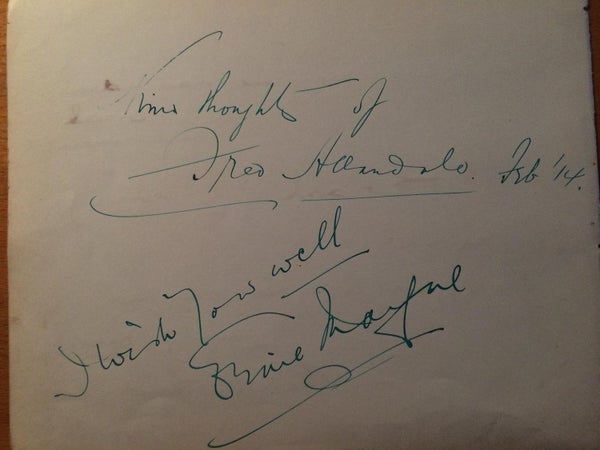 Kind thoughts of
Fred Feb '14.
I wish you well
Ernie Mayne